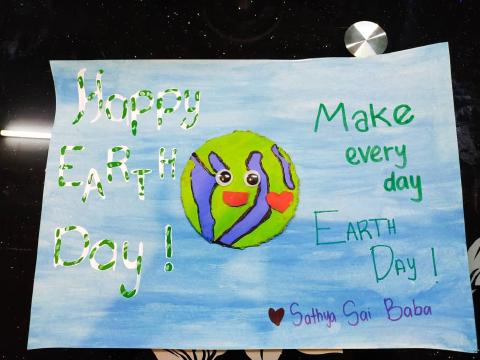 Happy
EARTH
Day!
Make
every
day
EARTH
DAY!
Sathya Sai Baba